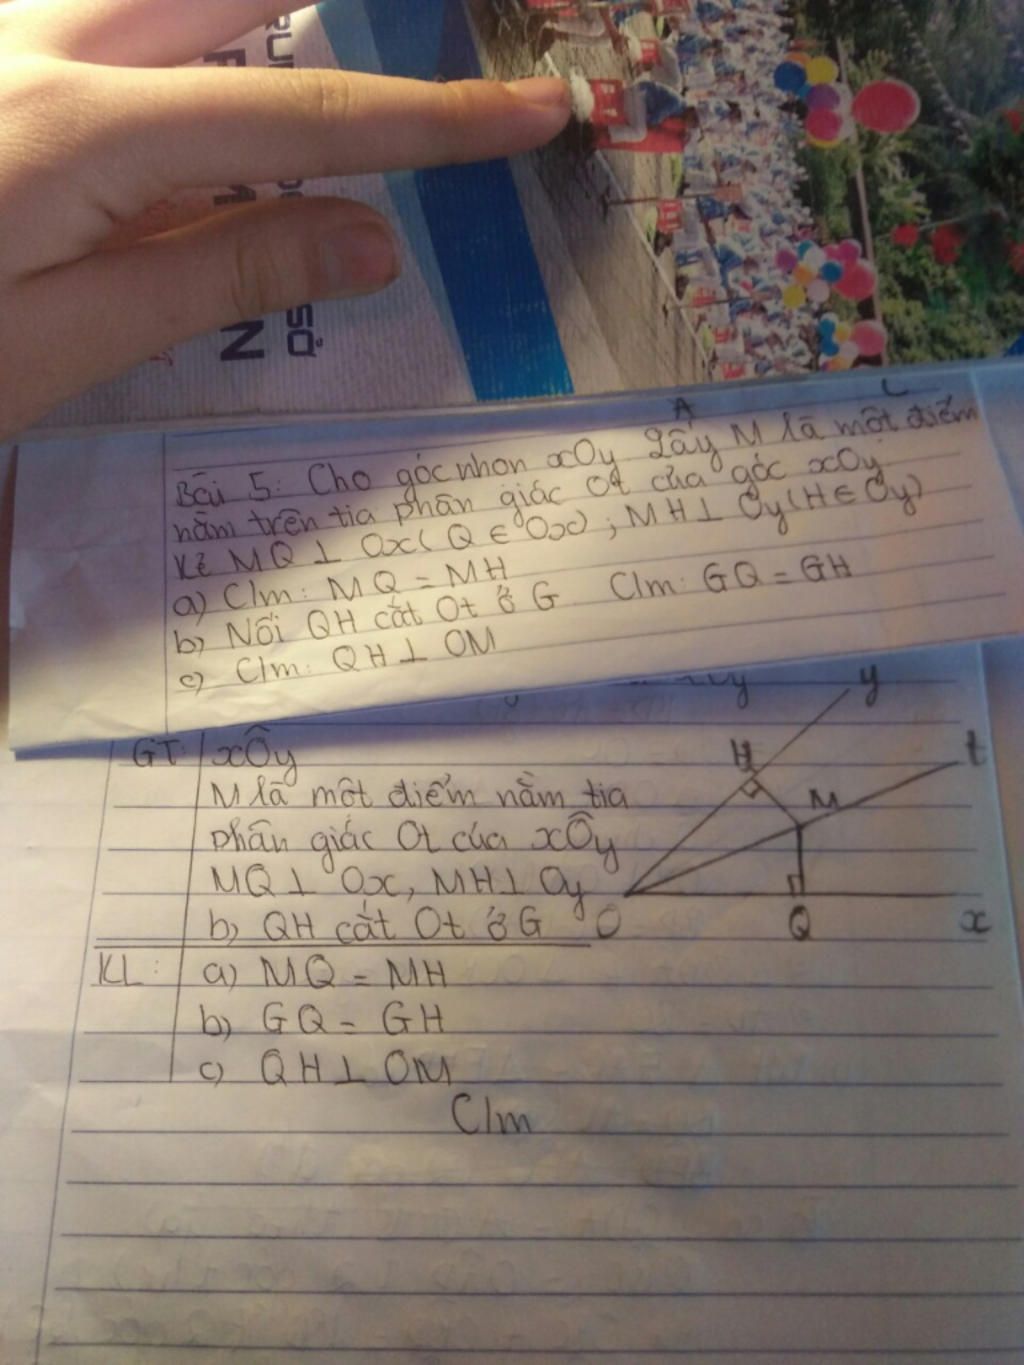 SỞ
N
A
L
Bài 5: Cho góc nhọn xOy Lấy M là một điểm
nằm trên tia phân giác Ot của góc xOy
Kẻ MQ ⊥ Ox (Q ∈ Ox) ; MH ⊥ Oy (H ∈ Oy)
a) C/m: MQ = MH
b) Nối QH cắt Ot ở G C/m: GQ = GH
c) C/m: QH ⊥ OM
y
GT: xÔy
M là một điểm nằm tia
phân giác Ot của xÔy
MQ ⊥ Ox, MH ⊥ Oy
b) QH cắt Ot ở G
H
t
M
O
Q
x
KL: a) MQ = MH
b) GQ = GH
c) QH ⊥ OM
C/m